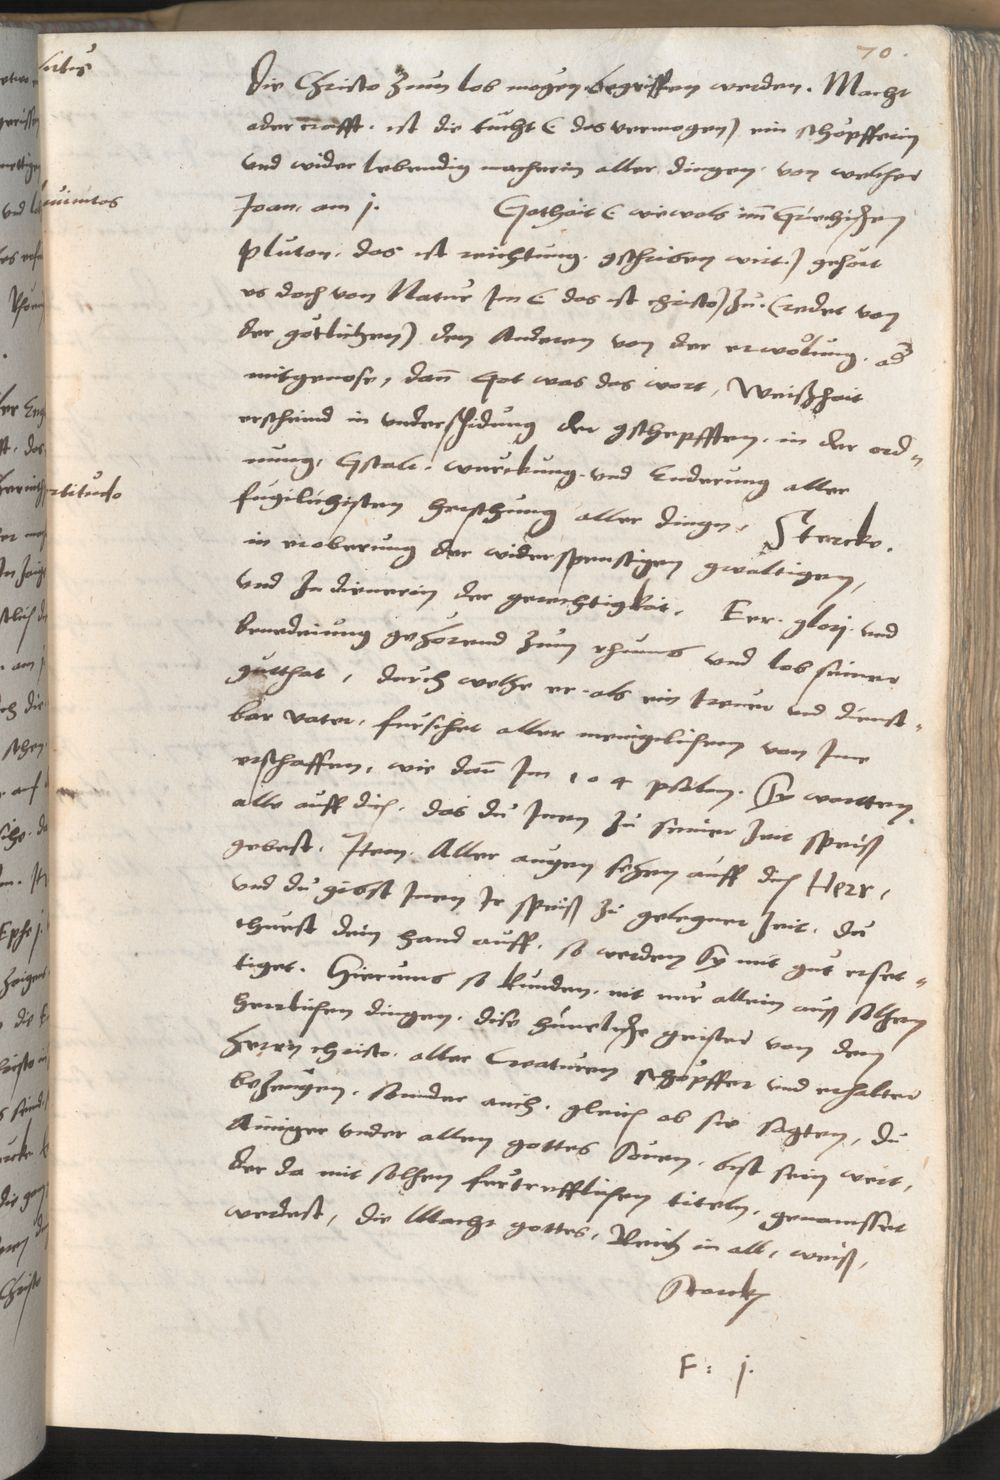 70.
Die Christo zum lob mogen begriffen werden. Macht
oder crafft. ist die tucht (das vermogen) ein schöpfferin
und wider lebendig macherin aller dingen. von welcher
Joan. am j. Gothait (wiewols im Griechischen
pluton. das ist reichtung. gschriben wirt.) gehört
es doch von Natur Im (das ist christo) zu. (redet von
der götlichen) den Anderen von der erwölung. ad
mitgenose, dann Got was das wort, Weißhait
erscheind in underschidung der gschepfften. in der ord-
nung, gstalt. würckung. und Enderung aller
füglichisten herschung aller dingen. Stercke.
in eroberung der widerspenstigen gwaltigen,
und In dienerin der gerechtigkait. Eer. glorj. und
benedeiung gehörend zum rhums und lob seiner
gutthat, durch welche er als ein treuer und dienst-
bar vater. fürsihet aller menigelichem von Ime
erschaffen, wie dann Im 104 psalm. Sy wartten
alle auff dich. das du Inen zu seiner Zeit speiß
gebest. Item. Aller augen sehen auff dich Herr,
und du gibst Inen Ir speiß zu gelegner Zeit. du
thuest dein hand auff. so werden Sy mit gut erset-
tiget. Hierumb so kunden. nit nur allein auß solchen
herrlichen dingen. dise himelische geister von dem
herren christo. aller Creaturen schöpffer und erhalter
bezeugen. sonder auch. gleich ob sie sagten, du
Ainiger under allen gottes Sönen. bist sein wert,
der da mit solchen furtrefflichen titeln. genamsset
werdest, die Macht gottes, Reich in all, weiß,
Starck
F: j.